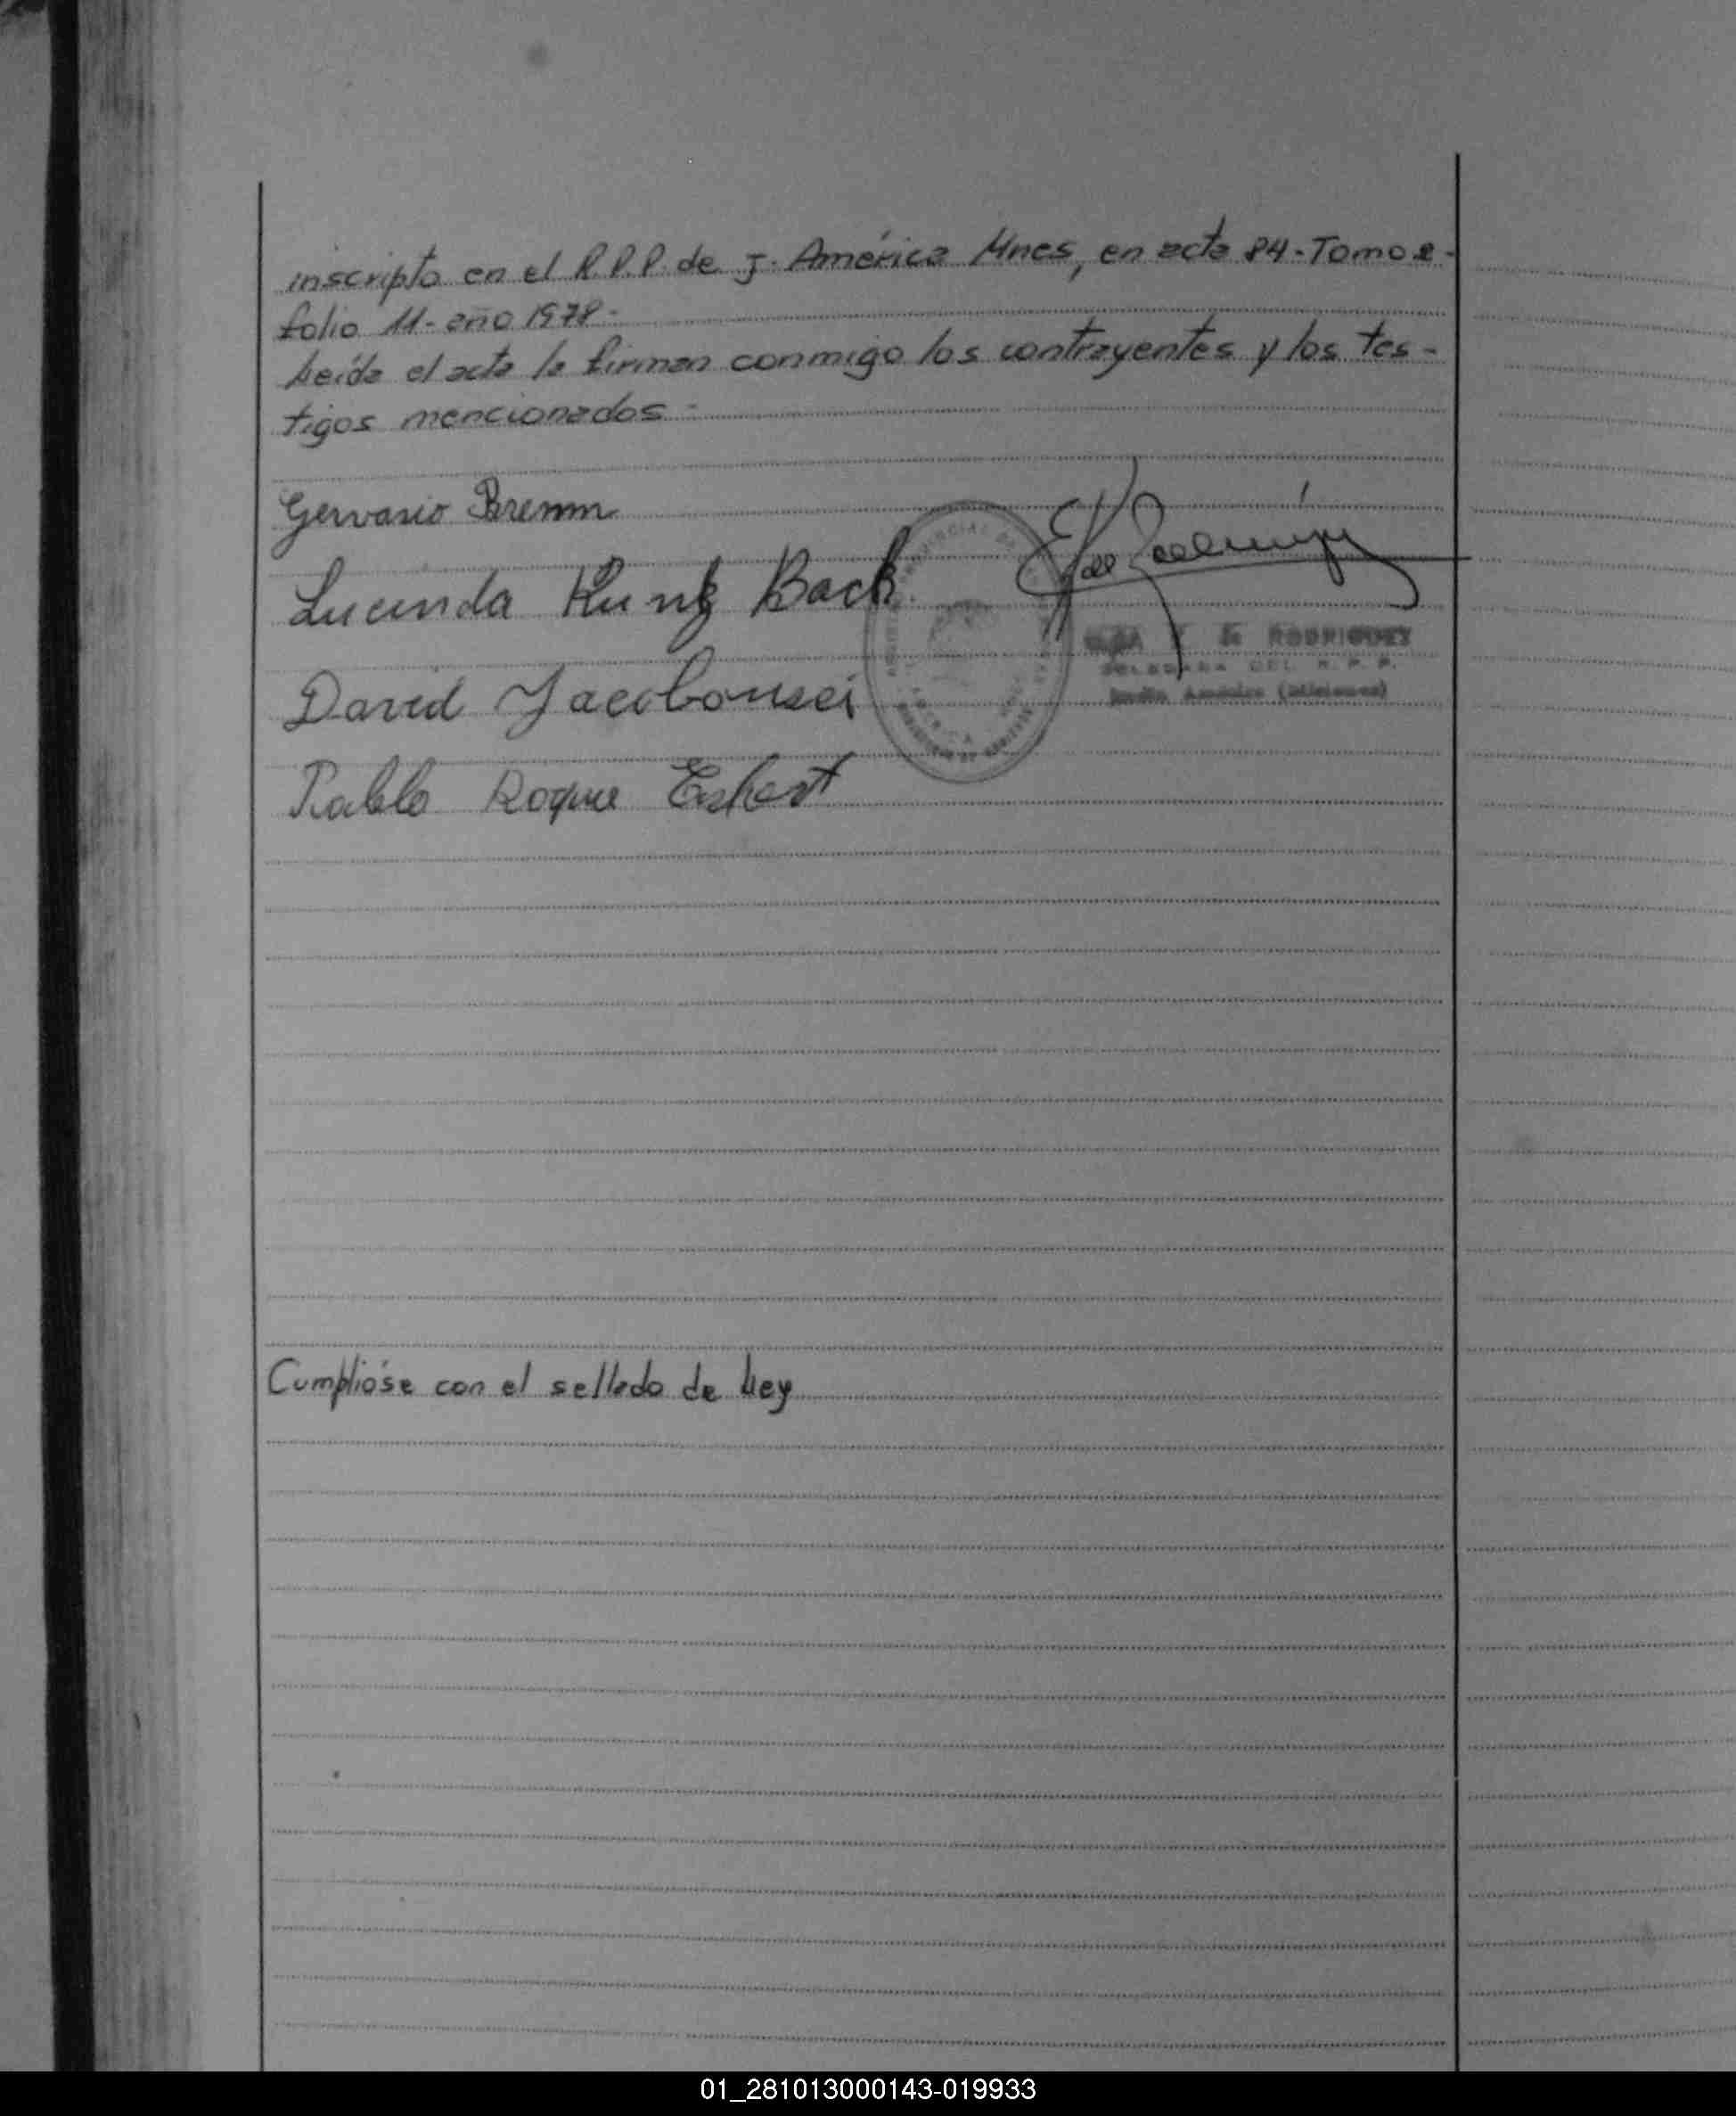 inscripto en el R.P.P. de J. América Mnes, en acta 84-Tomo 2-
folio 11- año 1978-
Leída el acta la firman conmigo los contrayentes y los tes-
tigos mencionados-
Gervasio Bremm
Lucinda Kunz Back
David Jacobousci
Pablo Roque Eckert
DE RODRIGUEZ
DELEGADA DEL R. P. P.
Jardín América (Misiones)
Cumplióse con el sellado de Ley
01_281013000143-019933